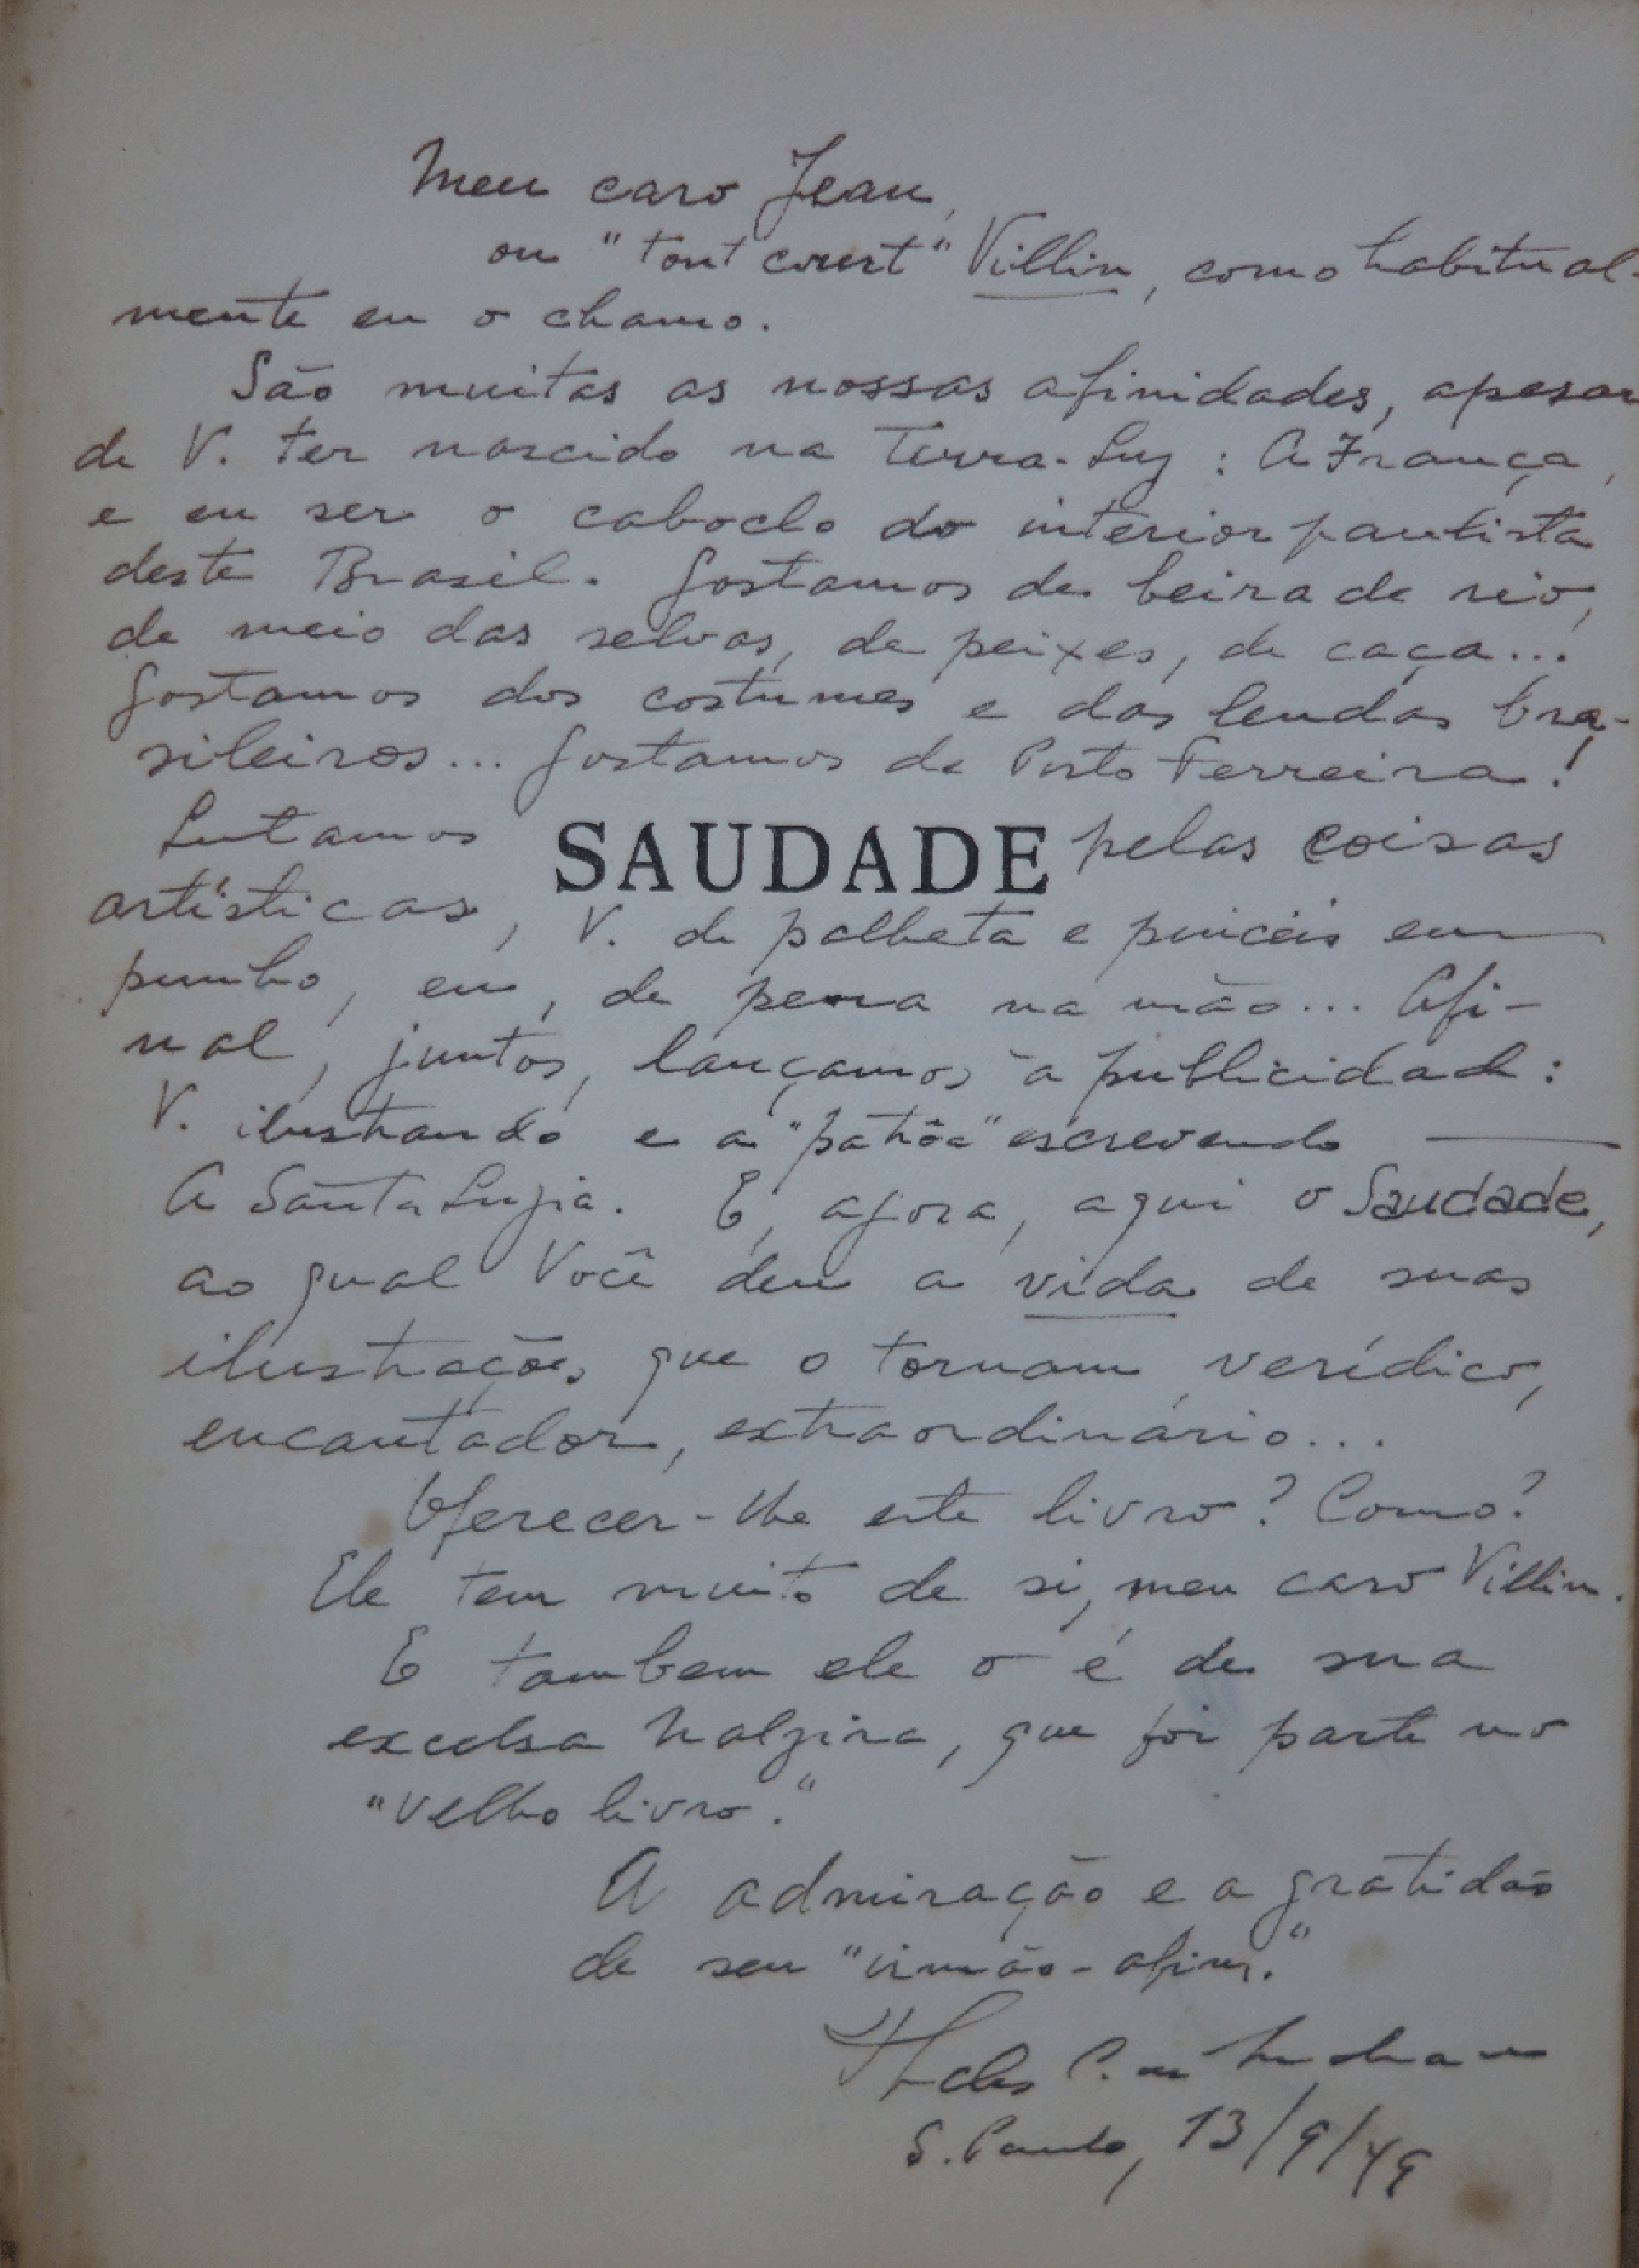 Meu caro Jean,
ou "tout court" Villin, como habitual-
mente eu o chamo.
São muitas as nossas afinidades, apesar
de V. ter nascido na Terra-Luz: A França,
e eu ser o caboclo do interior paulista
deste Brasil. Gostamos de beira de rio,
de meio das selvas, de peixes, de caça...
Gostamos dos costumes e das lendas bra-
sileiros... Gostamos de Porto Ferreira!
Lutamos SAUDADE pelas coisas
artísticas, V. de palheta e pincéis em
punho, eu, de pena na mão... Afi-
nal, juntos, lançamos à publicidade:
V. ilustrando e a "patrôa" escrevendo —
A Santa Luzia. E, agora, aqui o Saudade,
ao qual Você deu a vida de suas
ilustrações, que o tornam verídico,
encantador, extraordinário...
Oferecer-lhe este livro? Como?
Ele tem muito de si, meu caro Villin.
E tambem ele o é de sua
excelsa, que foi parte no
"velho livro."
A admiração e a gratidão
de seu "irmão-afim."
Thales C. de
S. Paulo, 13/9/49